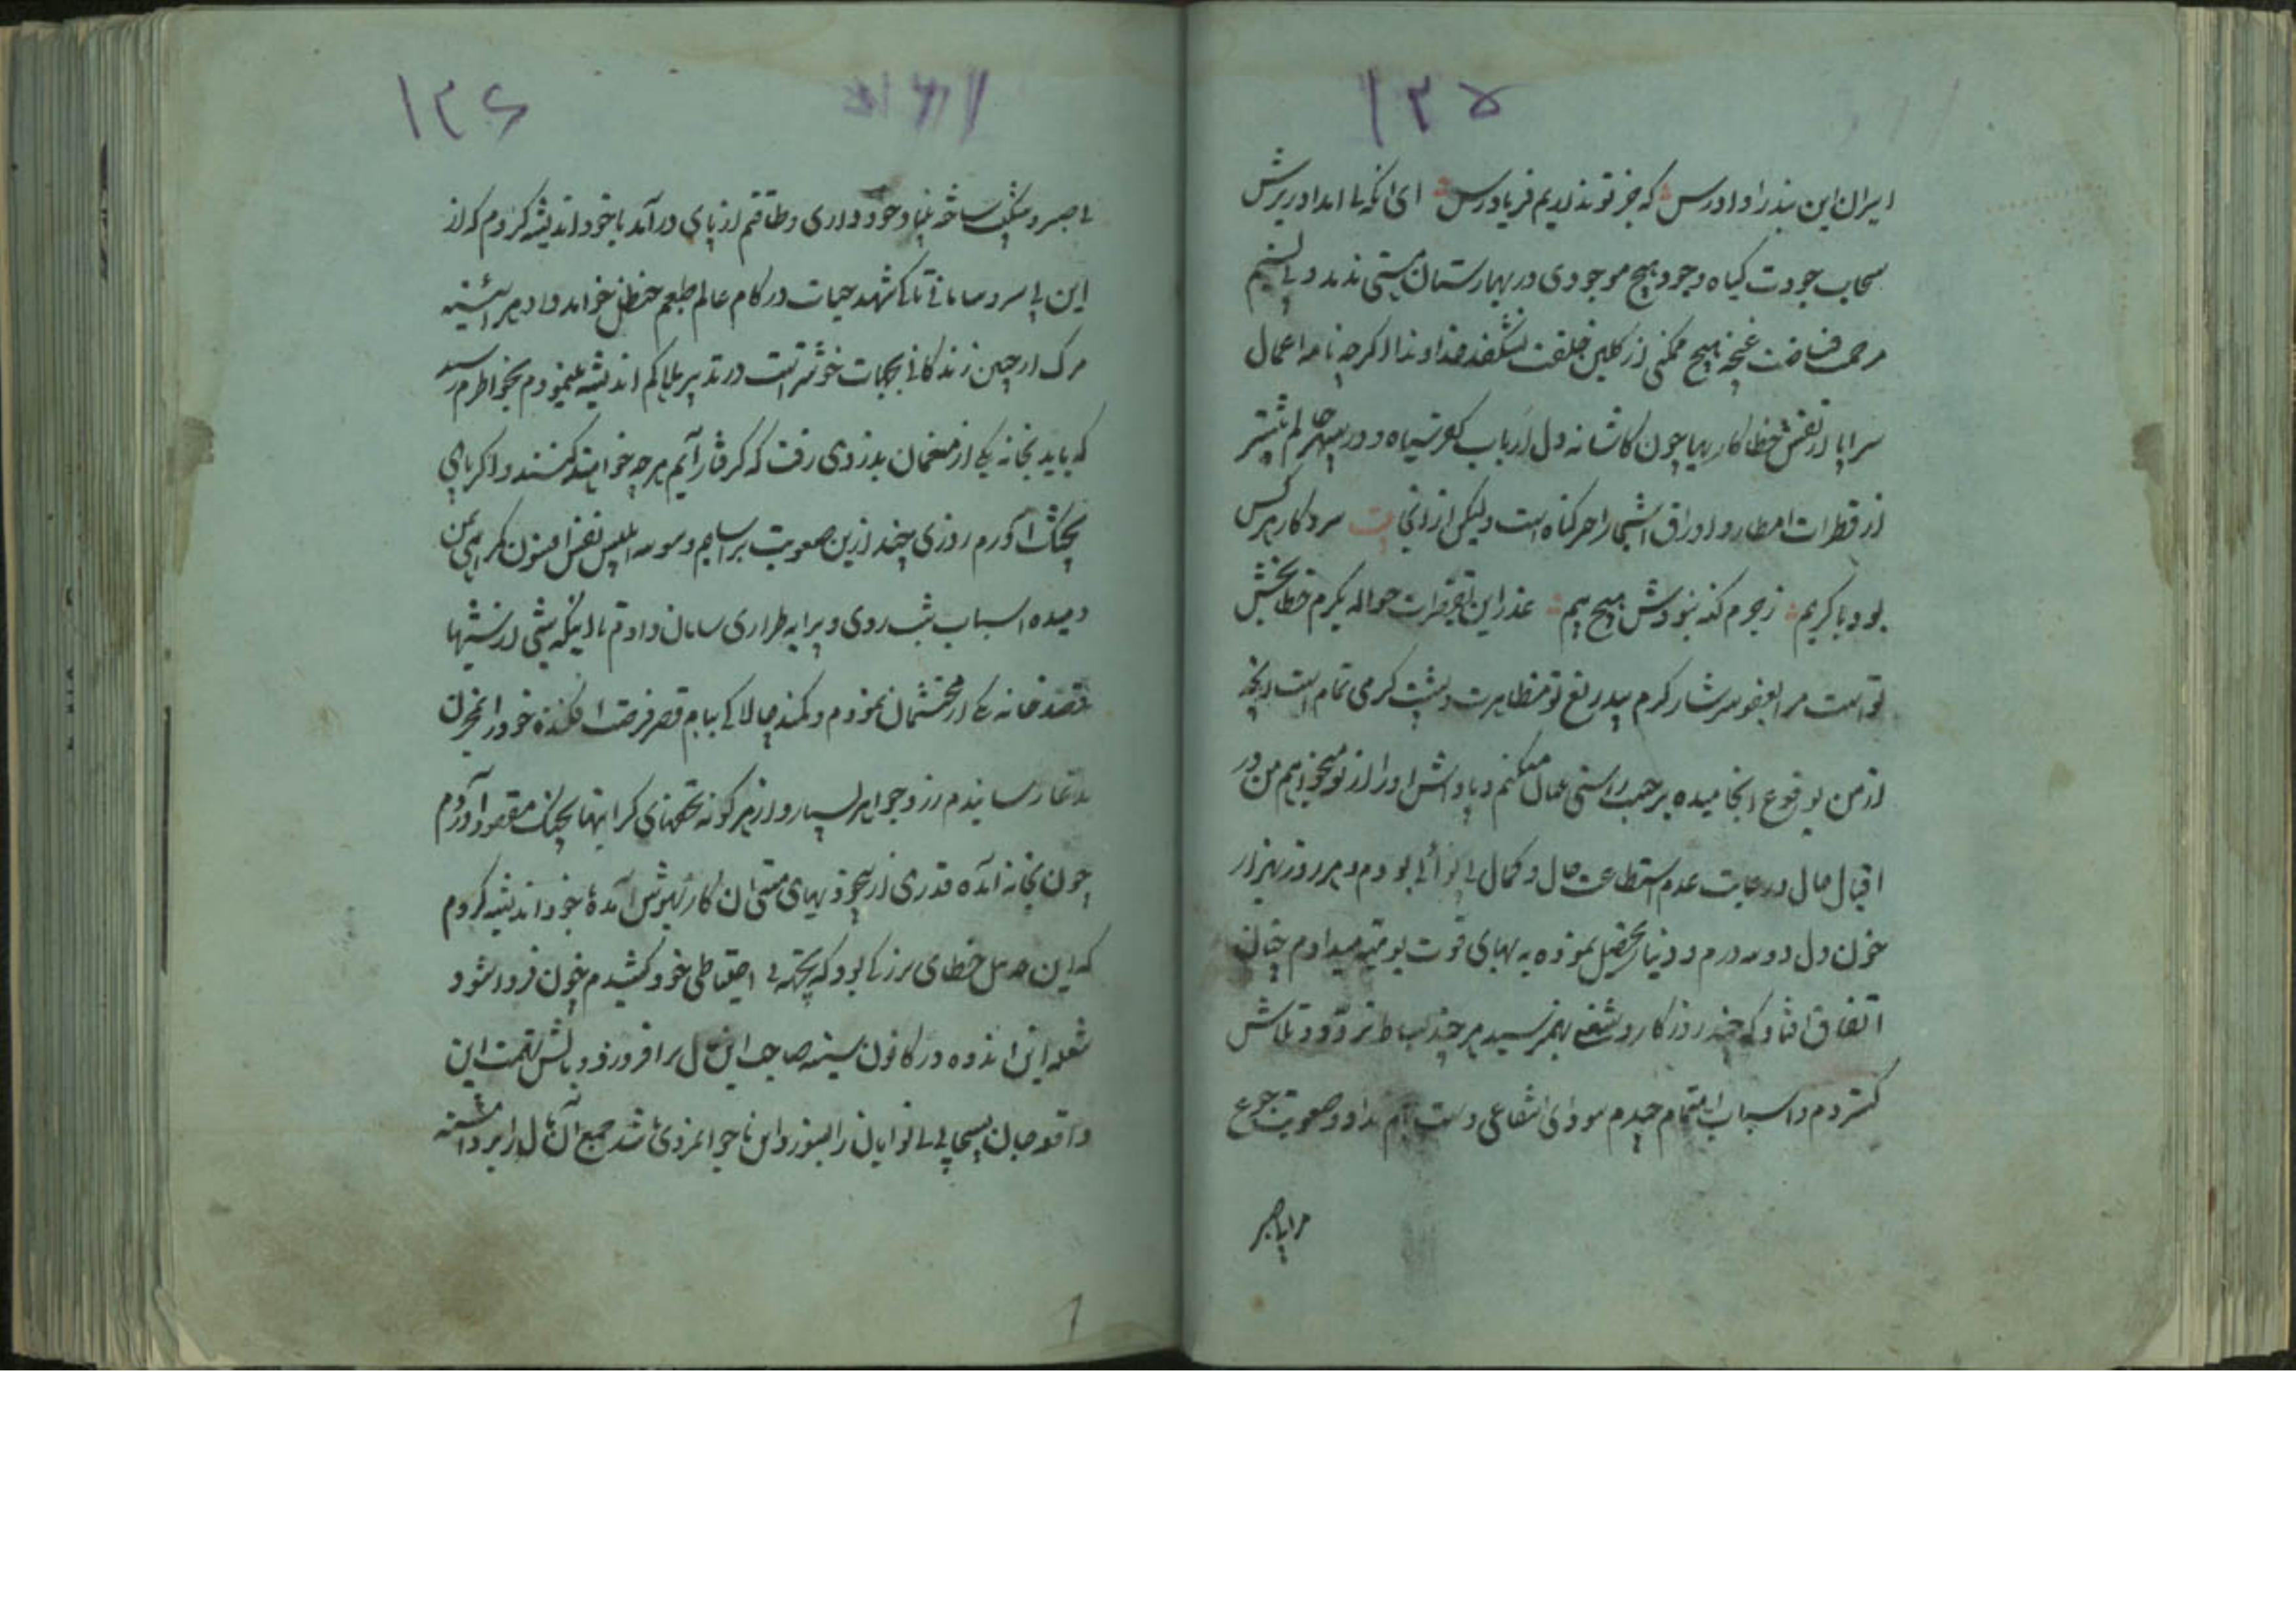 ۱۳۵
ایران این بنذر را دادرس که جز تو نداریم فریادرس ای آنکه بی امداد ریزش
سحاب جودت گیاه وجود هیچ موجودی در بهارستان هستی ندمد و بی نسیم
مرحمت فیاضت غنچه هیچ ممکنی از گلبن خلقت نشکفد خداوندا اگرچه نامه اعمال
سراپا از نقش خطا کاریها چون کاشانه دل ارباب کفر سیاه و دور سپهر جرایم بیشتر
از قطرات امطار و اوراق اشجار گناه است ولیکن از آنجا سر و کار هر کس
بود با کریم ز جرم گنه نبودش هیچ بیم عذر این تقصیرات حواله بکرم خطابخش
تو است مرا بعفو سرشار کرم بیدریغ تو مظاهرت و پشت گرمی تمام است آنچه
از من بوقوع انجامیده بر حسب راستی عمال میکنم و پاداش او را از تو میخواهم من در
اقبال حال در غایت عدم استطاعت مال و کمال بی نوائی بودم و هر روز بهزار
خون دل دو سه درم و دینار تحصیل نموده به بهای قوت یومیه میدادم چنان
اتفاق افتاد که چند روز کار و شغلی بهم نرسید هر چند بساط تردد و تلاش
گستردم و اسباب اهتمام چیدم سودای انتفاعی دست بهم نداد و صعوبت جوع
مرا بی صبر
۱۳۶
بی صبر و شکیب ساخته بنیاد خودداری و طاقتم از پای درآمد با خود اندیشه کردم که از
این بی سر و سامانی تا کی شهد حیات در کام عالم طعم حنظل خواهد داد هر آئینه
مرگ از چنین زندگانی بجهات خوشتر است در تدبیر بلا کم اندیشه مینمودم بخواطرم رسید
که باید بخانه یکی از منعمان بدزدی رفت که گر گرفتار آیم هر چه خواهند کنند و اگر پای
بچنگ آورم روزی چند ازین صعوبت برآسایم وسوسه ابلیس نفس افسون گمراهی بمن
دمیده اسباب شب روی و پیرایه طراری سامان دادم تا اینکه شبی از شبها
قصد خانه یکی از محتشمان نمودم و کمند چالاکی ببام قصر فرصت افکنده خود را بمخزن
مدعا رسانیدم زر و جواهر بسیار و از هر گونه تحفهای گرانبها بچنگ مقصود آوردم
چون بخانه آمده قدری از بیخودیهای مستی آن کار بهوش آمده با خود اندیشه کردم
که این عمل خطای بزرگی بود که پنجه بی احتیاطی خود کشیدم چون فردا شود
شعله این اندوه در کانون سینه صاحب این مال برافروزد و بآتش تهمت این
واقعه جان بسیاری بی نوایان را بسوزد این ناجوانمردی باشد جمیع آن مال را برداشته